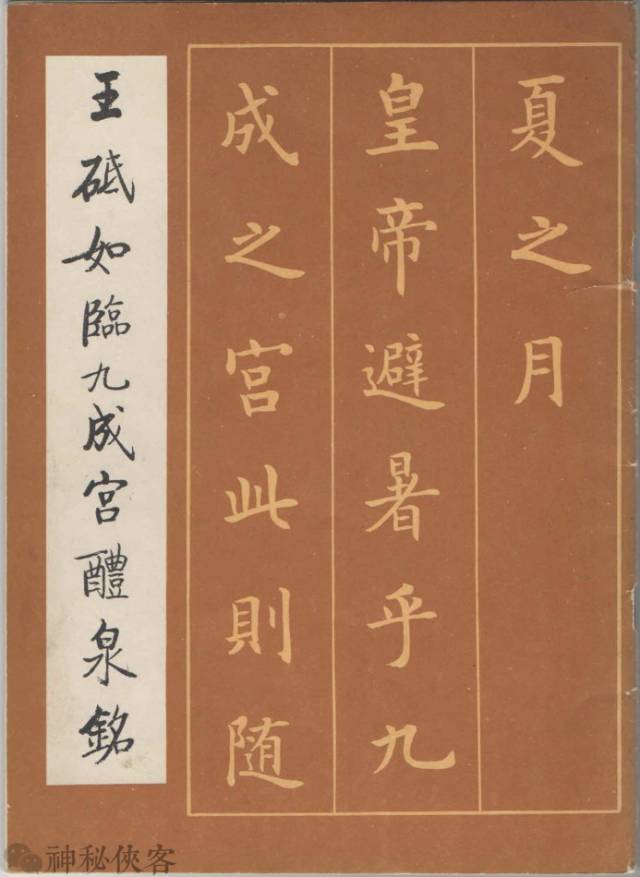 夏之月
皇帝避暑乎九
成之宫此則随
王砥如臨九成宫醴泉銘
神秘俠客